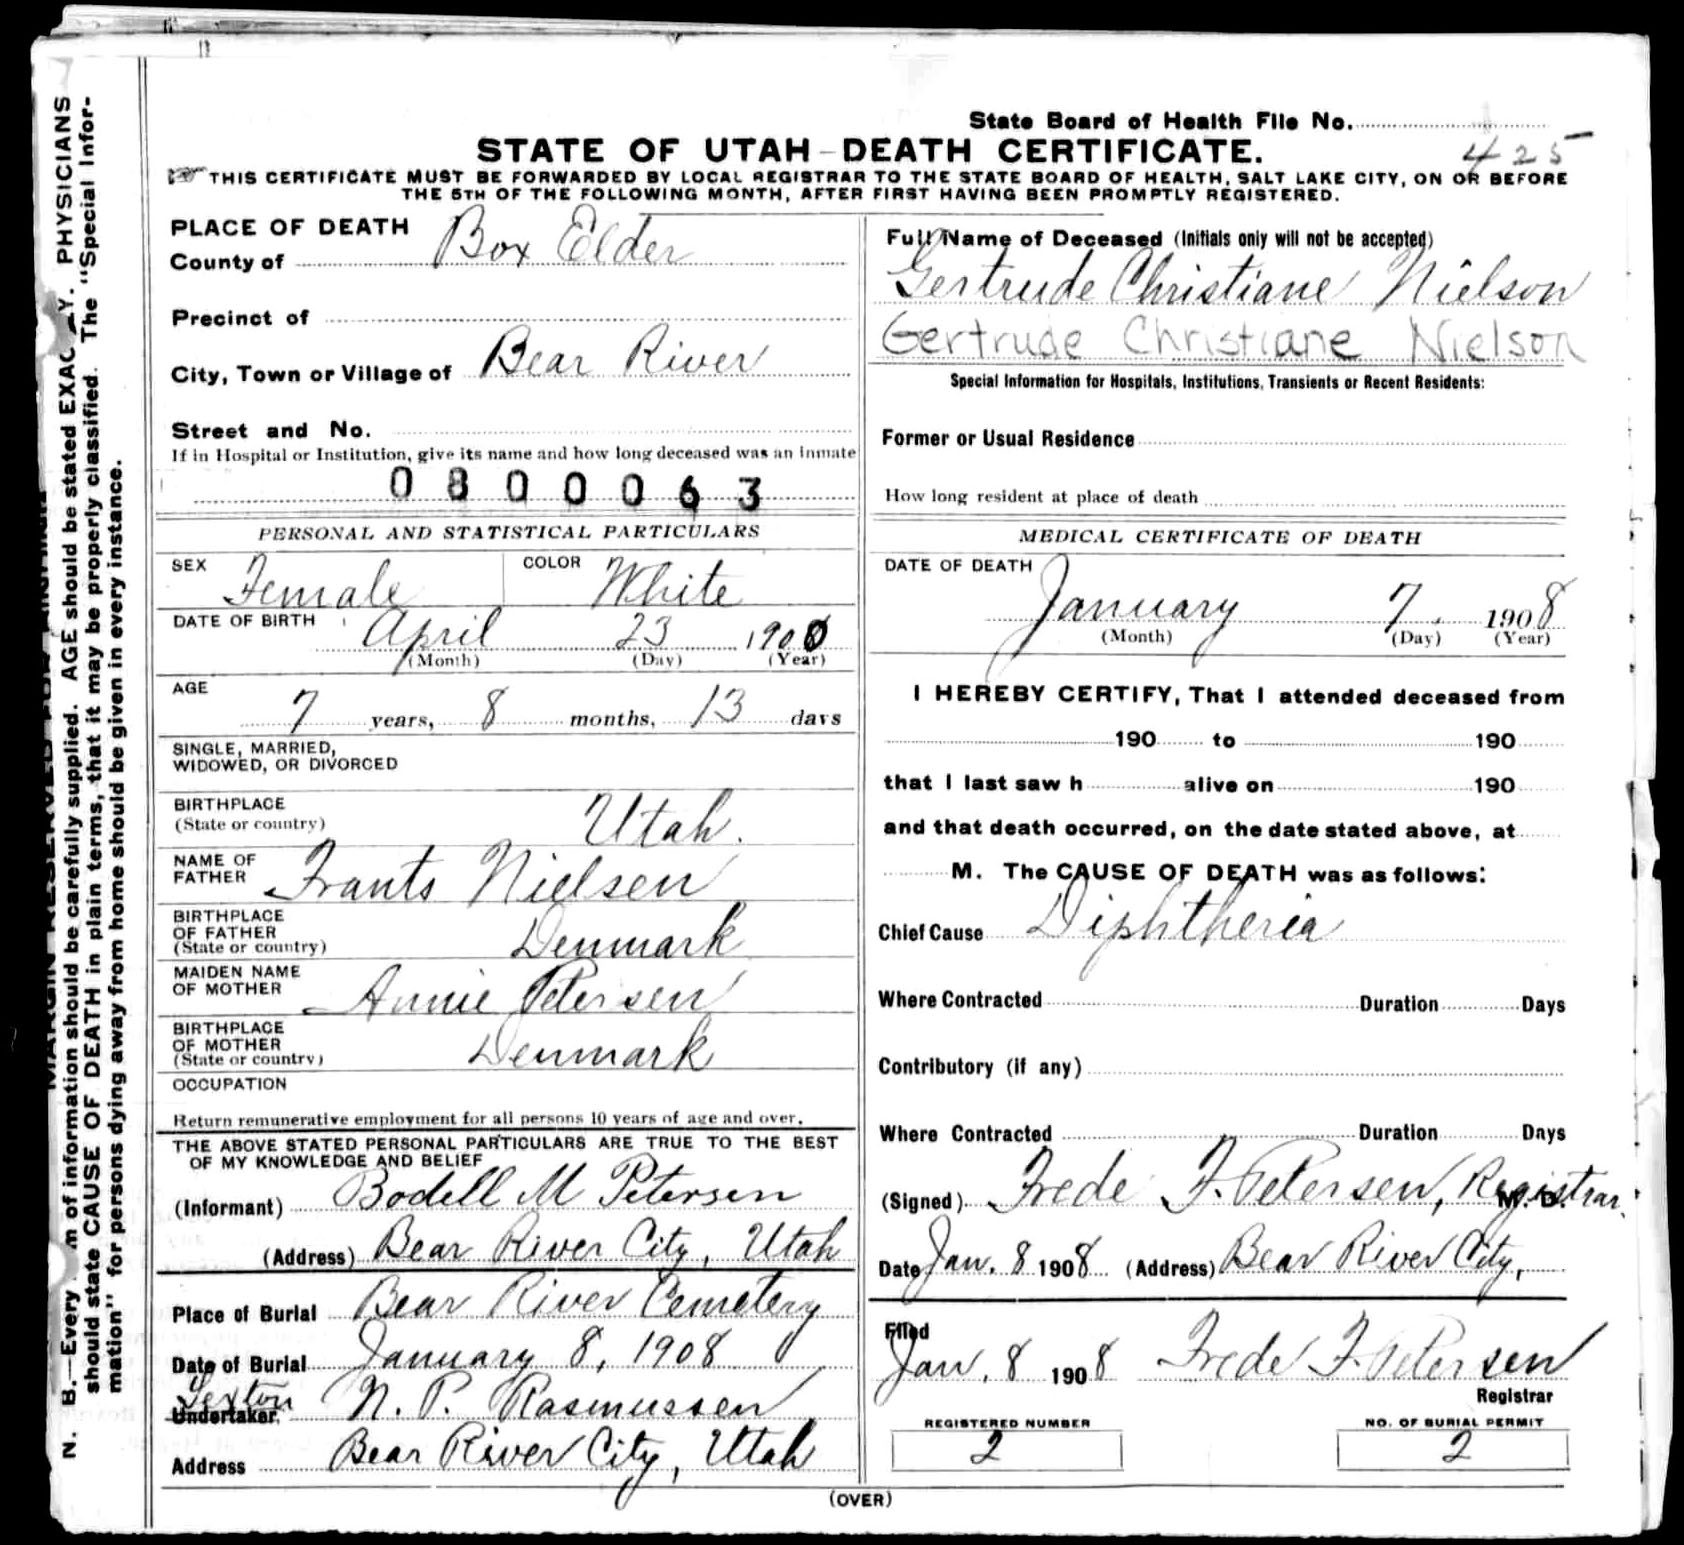 State Board of Health File No.
425
STATE OF UTAH—DEATH CERTIFICATE.
THIS CERTIFICATE MUST BE FORWARDED BY LOCAL REGISTRAR TO THE STATE BOARD OF HEALTH, SALT LAKE CITY, ON OR BEFORE
THE 5TH OF THE FOLLOWING MONTH, AFTER FIRST HAVING BEEN PROMPTLY REGISTERED.
PLACE OF DEATH
County of Box Elder
Precinct of
City, Town or Village of Bear River
Street and No.
If in Hospital or Institution, give its name and how long deceased was an inmate
0800063
PERSONAL AND STATISTICAL PARTICULARS
SEX Female COLOR White
DATE OF BIRTH April 23 1900
(Month) (Day) (Year)
AGE
7 years, 8 months, 13 days
SINGLE, MARRIED,
WIDOWED, OR DIVORCED
BIRTHPLACE
(State or country) Utah.
NAME OF
FATHER Frants Nielsen
BIRTHPLACE
OF FATHER
(State or country) Denmark
MAIDEN NAME
OF MOTHER Annie Petersen
BIRTHPLACE
OF MOTHER
(State or country) Denmark
OCCUPATION
Return remunerative employment for all persons 10 years of age and over.
THE ABOVE STATED PERSONAL PARTICULARS ARE TRUE TO THE BEST
OF MY KNOWLEDGE AND BELIEF
(Informant) Bodell M Petersen
(Address) Bear River City, Utah
Place of Burial Bear River Cemetery
Date of Burial January 8, 1908
Sexton
Undertaker N. P. Rasmussen
Address Bear River City, Utah
Full Name of Deceased (Initials only will not be accepted)
Gertrude Christiane Nielson
Gertrude Christiane Nielson
Special Information for Hospitals, Institutions, Transients or Recent Residents:
Former or Usual Residence
How long resident at place of death
MEDICAL CERTIFICATE OF DEATH
DATE OF DEATH
January 7. 1908
(Month) (Day) (Year)
I HEREBY CERTIFY, That I attended deceased from
190 to 190
that I last saw h alive on 190
and that death occurred, on the date stated above, at
M. The CAUSE OF DEATH was as follows:
Chief Cause Diphtheria
Where Contracted Duration Days
Contributory (if any)
Where Contracted Duration Days
(Signed) Frede F. Petersen, Registrar. M. D.
Date Jan. 8 1908 (Address) Bear River City,
Filed
Jan. 8 1908 Frede F. Petersen
Registrar
REGISTERED NUMBER NO. OF BURIAL PERMIT
2 2
(OVER)
N. B.—Every of information should be carefully supplied. AGE should be stated EXAC Y. PHYSICIANS
should state CAUSE OF DEATH in plain terms, that it may be properly classified. The "Special Infor-
mation" for persons dying away from home should be given in every instance.